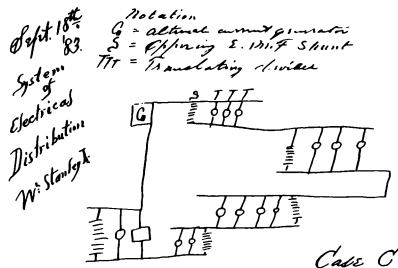 Sept. 18th
'83.
System
of
Electrical
Distribution
Wm Stanley Jr.
Notation
G = alternat current generator
S = opposing E.M.F Shunt
TTT = Translating devices
G
S T T T
Case C